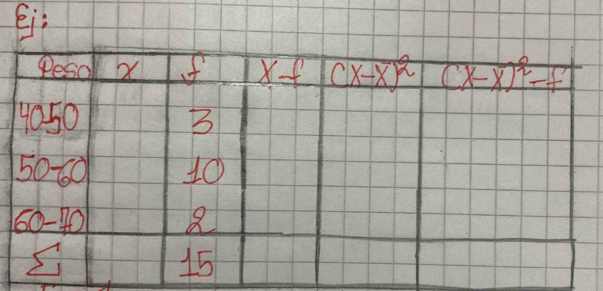 Ej:
Peso x f x-f (x-x̄)² (x-x̄)²-f
40-50 3
50-60 10
60-70 2
Σ 15